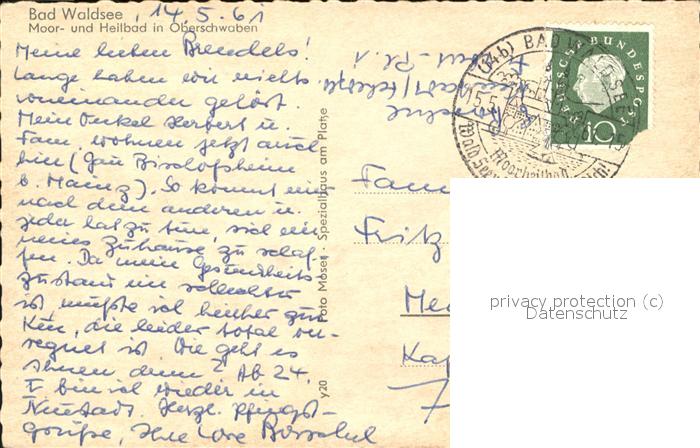 Bad Waldsee
Moor- und Heilbad in Oberschwaben
14.5.61
Meine lieben Brendels!
Lange haben wir nichts
voneinander gehört.
Mein Onkel Herbert u.
Fam. wohnen jetzt auch
hier (Gau Bischofsheim
b. Mainz). So kommt ein
nach dem anderen u.
jeder hat zu tun, sich ein
neues Zuhause zu schaf-
fen. Da mein Gesundheits-
zustand ein schlechter
ist, mußte ich hierher zur
Kur, die leider total ver-
regnet ist. Wie geht es
Ihnen denn? Ab 24.
5. bin ich wieder in
Neustadt. Herzl. Pfingst-
grüße, Ihre Lore
Foto Moser · Spezialhaus am Platze
y20
(14b) BAD W
15.5.
Moorheilbad
DEUTSCHE BUNDESPOST
10
Fam
Fritz
Me
Ka
7
privacy protection (c)
Datenschutz